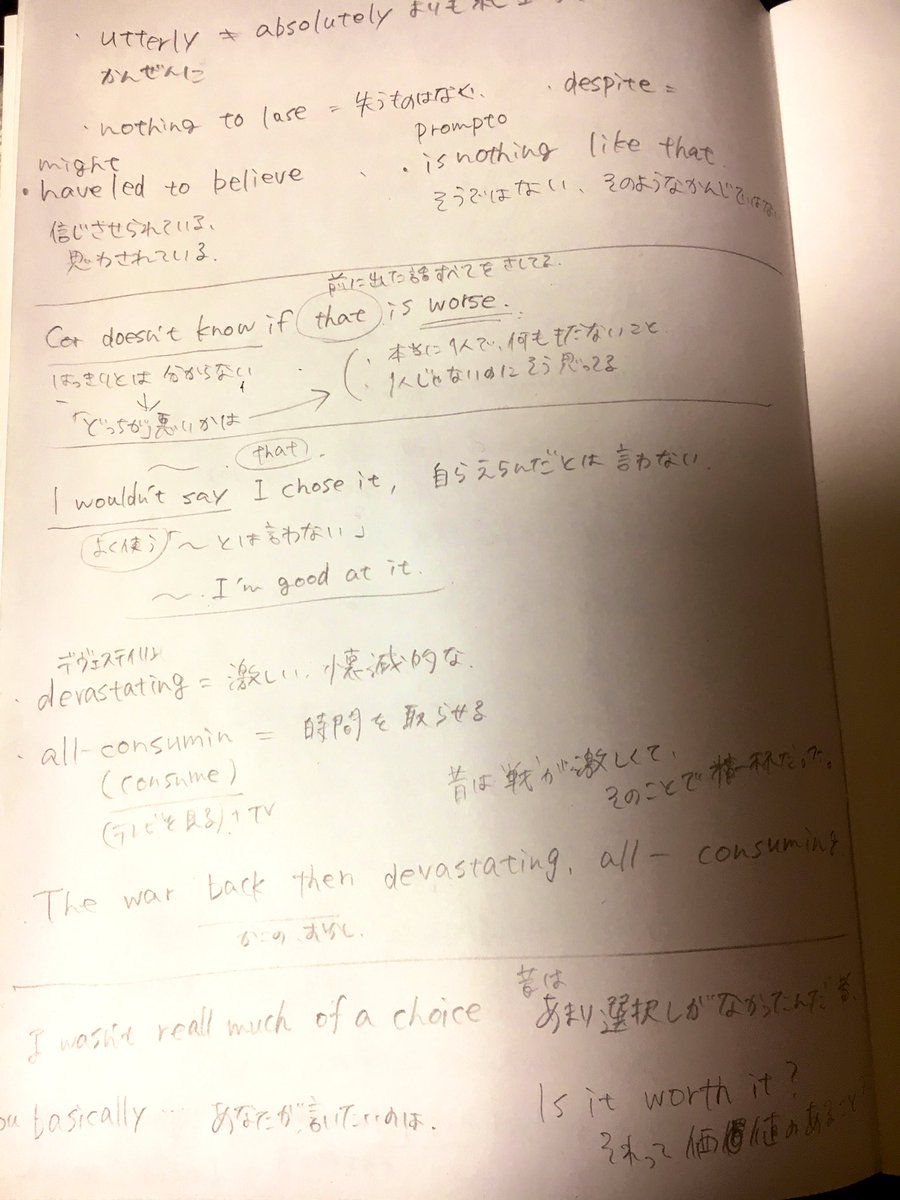 ・utterly ≠ absolutely よりも
かんぜんに
・nothing to lose = 失うものはなく、
・despite =
prompto
might
・have led to believe
・is nothing like that
信じさせられている、
思わされている。
そうではない、そのようなかんじではない
前に出た話すべてをさしてる。
Cor doesn't know if that is worse.
はっきりとは 分からない
・本当に1人で、何ももたないこと
・1人じゃないのにそう思ってる
「どっちが」悪いかは
〜 that.
I wouldn't say I chose it, 自らえらんだとは言わない.
よく使う「〜とは言わない」
〜. I'm good at it.
デヴェステイリン
・devastating = 激しい、壊滅的な
・all-consumin = 時間を取らせる
(consume)
(テレビを見る) + TV
昔は戦が激しくて、
そのことで精一杯だった。
The war back then devastating, all-consuming
かこの すがし.
I wasn't reall much of a choice
昔は
あまり選択しがなかったんだ
basically … あなたが言いたいのは.
Is it worth it?
それって価値のある